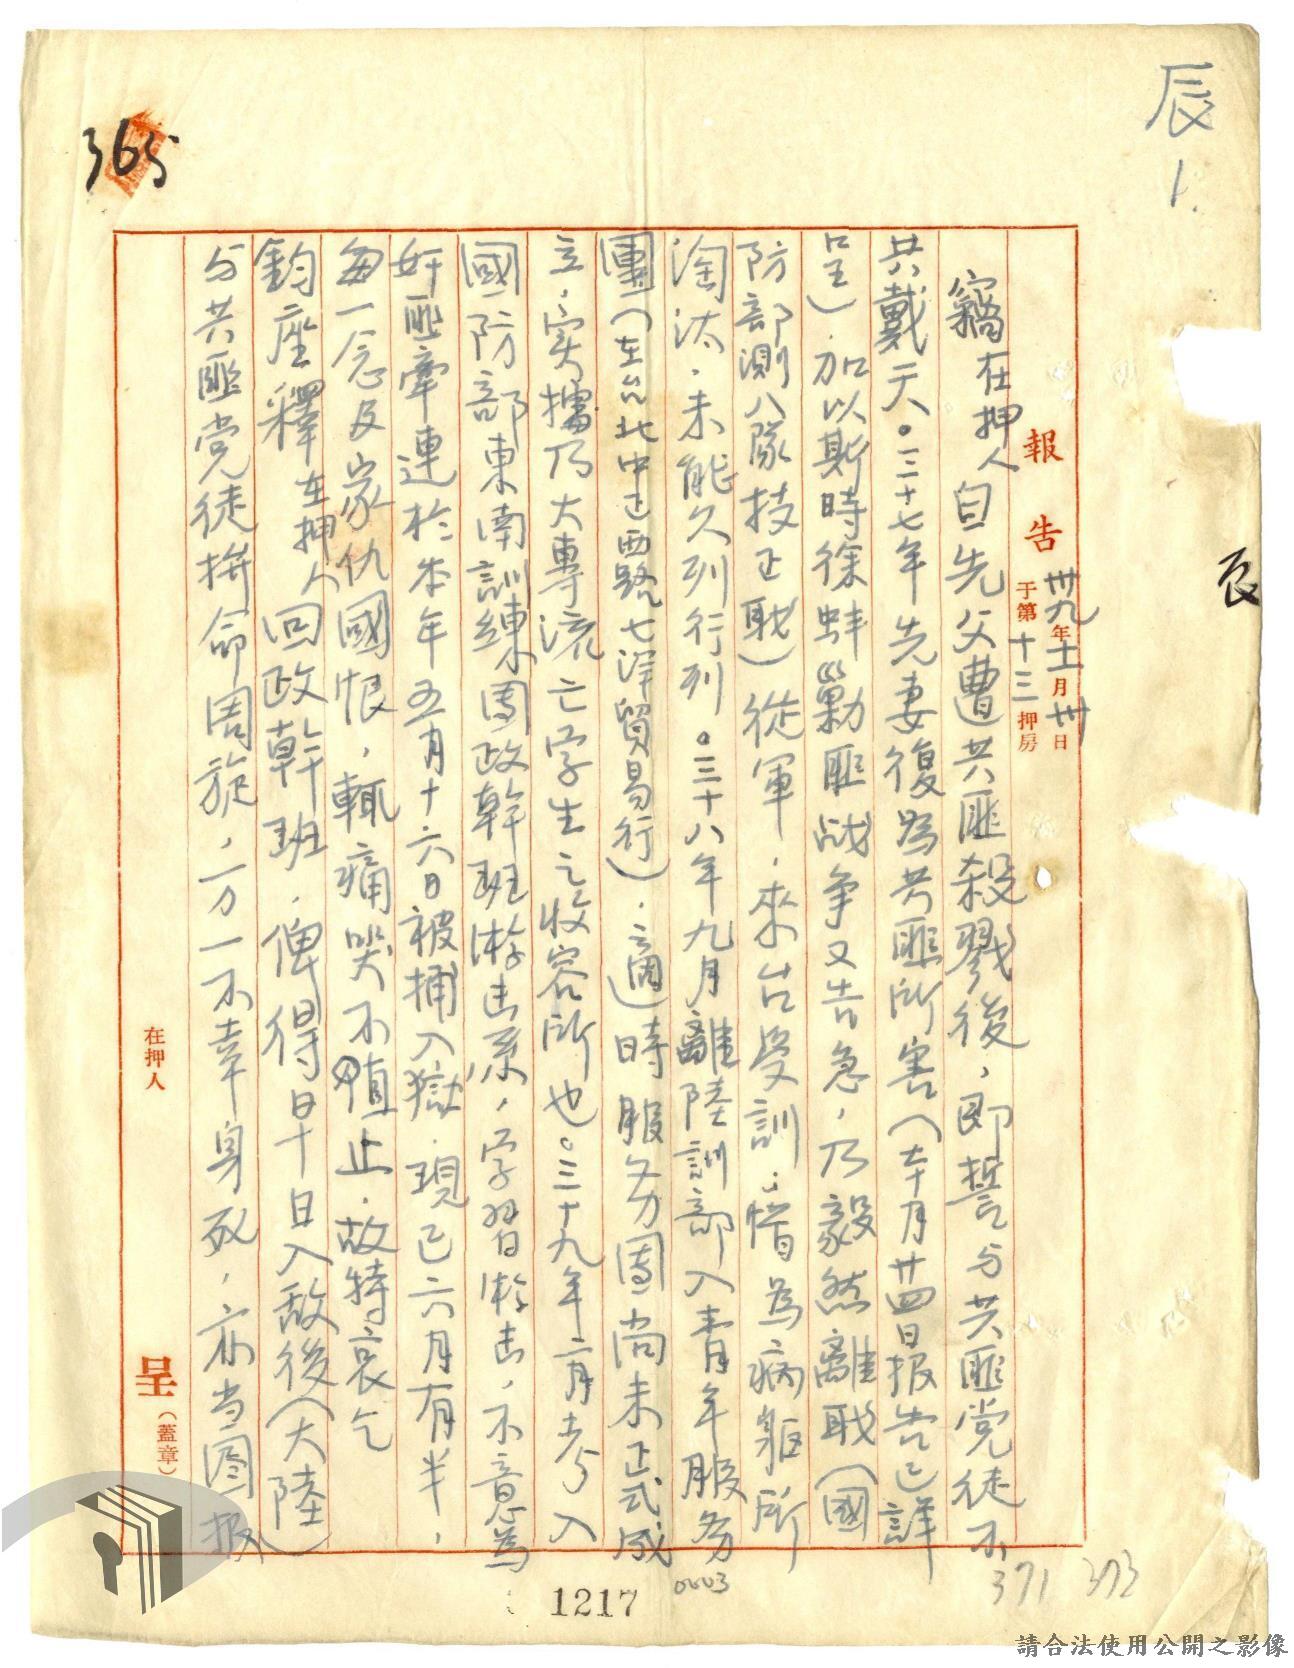 辰
1.
365
報告
卅九年十一月卅日
于第十三押房
竊在押人自先父遭共匪殺戮後，即誓与共匪党徒不
共戴天。三十七年先妻復為共匪所害（本月廿四日报告已詳
呈）．加以斯時徐蚌剿匪战争又告急，乃毅然離职（國
防部測八隊技正职）從軍．來台受訓．惜為病軀所
淘汰．未能久列行列。三十八年九月離陸訓部入青年服务
團（在台北中正西路七洋貿易行）．適時服务團尚未正式成
立．实擂乃大專流亡学生之收容所也。三十九年二月考入
國防部東南訓練團政幹班游击系，学習游击．不意為
奸匪牽連於本年五月十六日被捕入獄．現已六月有半，
每一念及家仇國恨，輒痛哭不值止．故特哀乞
鈞座釋在押人回政幹班．俾得早日入敌後（大陸）
与共匪党徒拚命周旋，万一不幸身死，亦当图报
在押人
呈（蓋章）
辰
371 373
0003
1217
請合法使用公開之影像